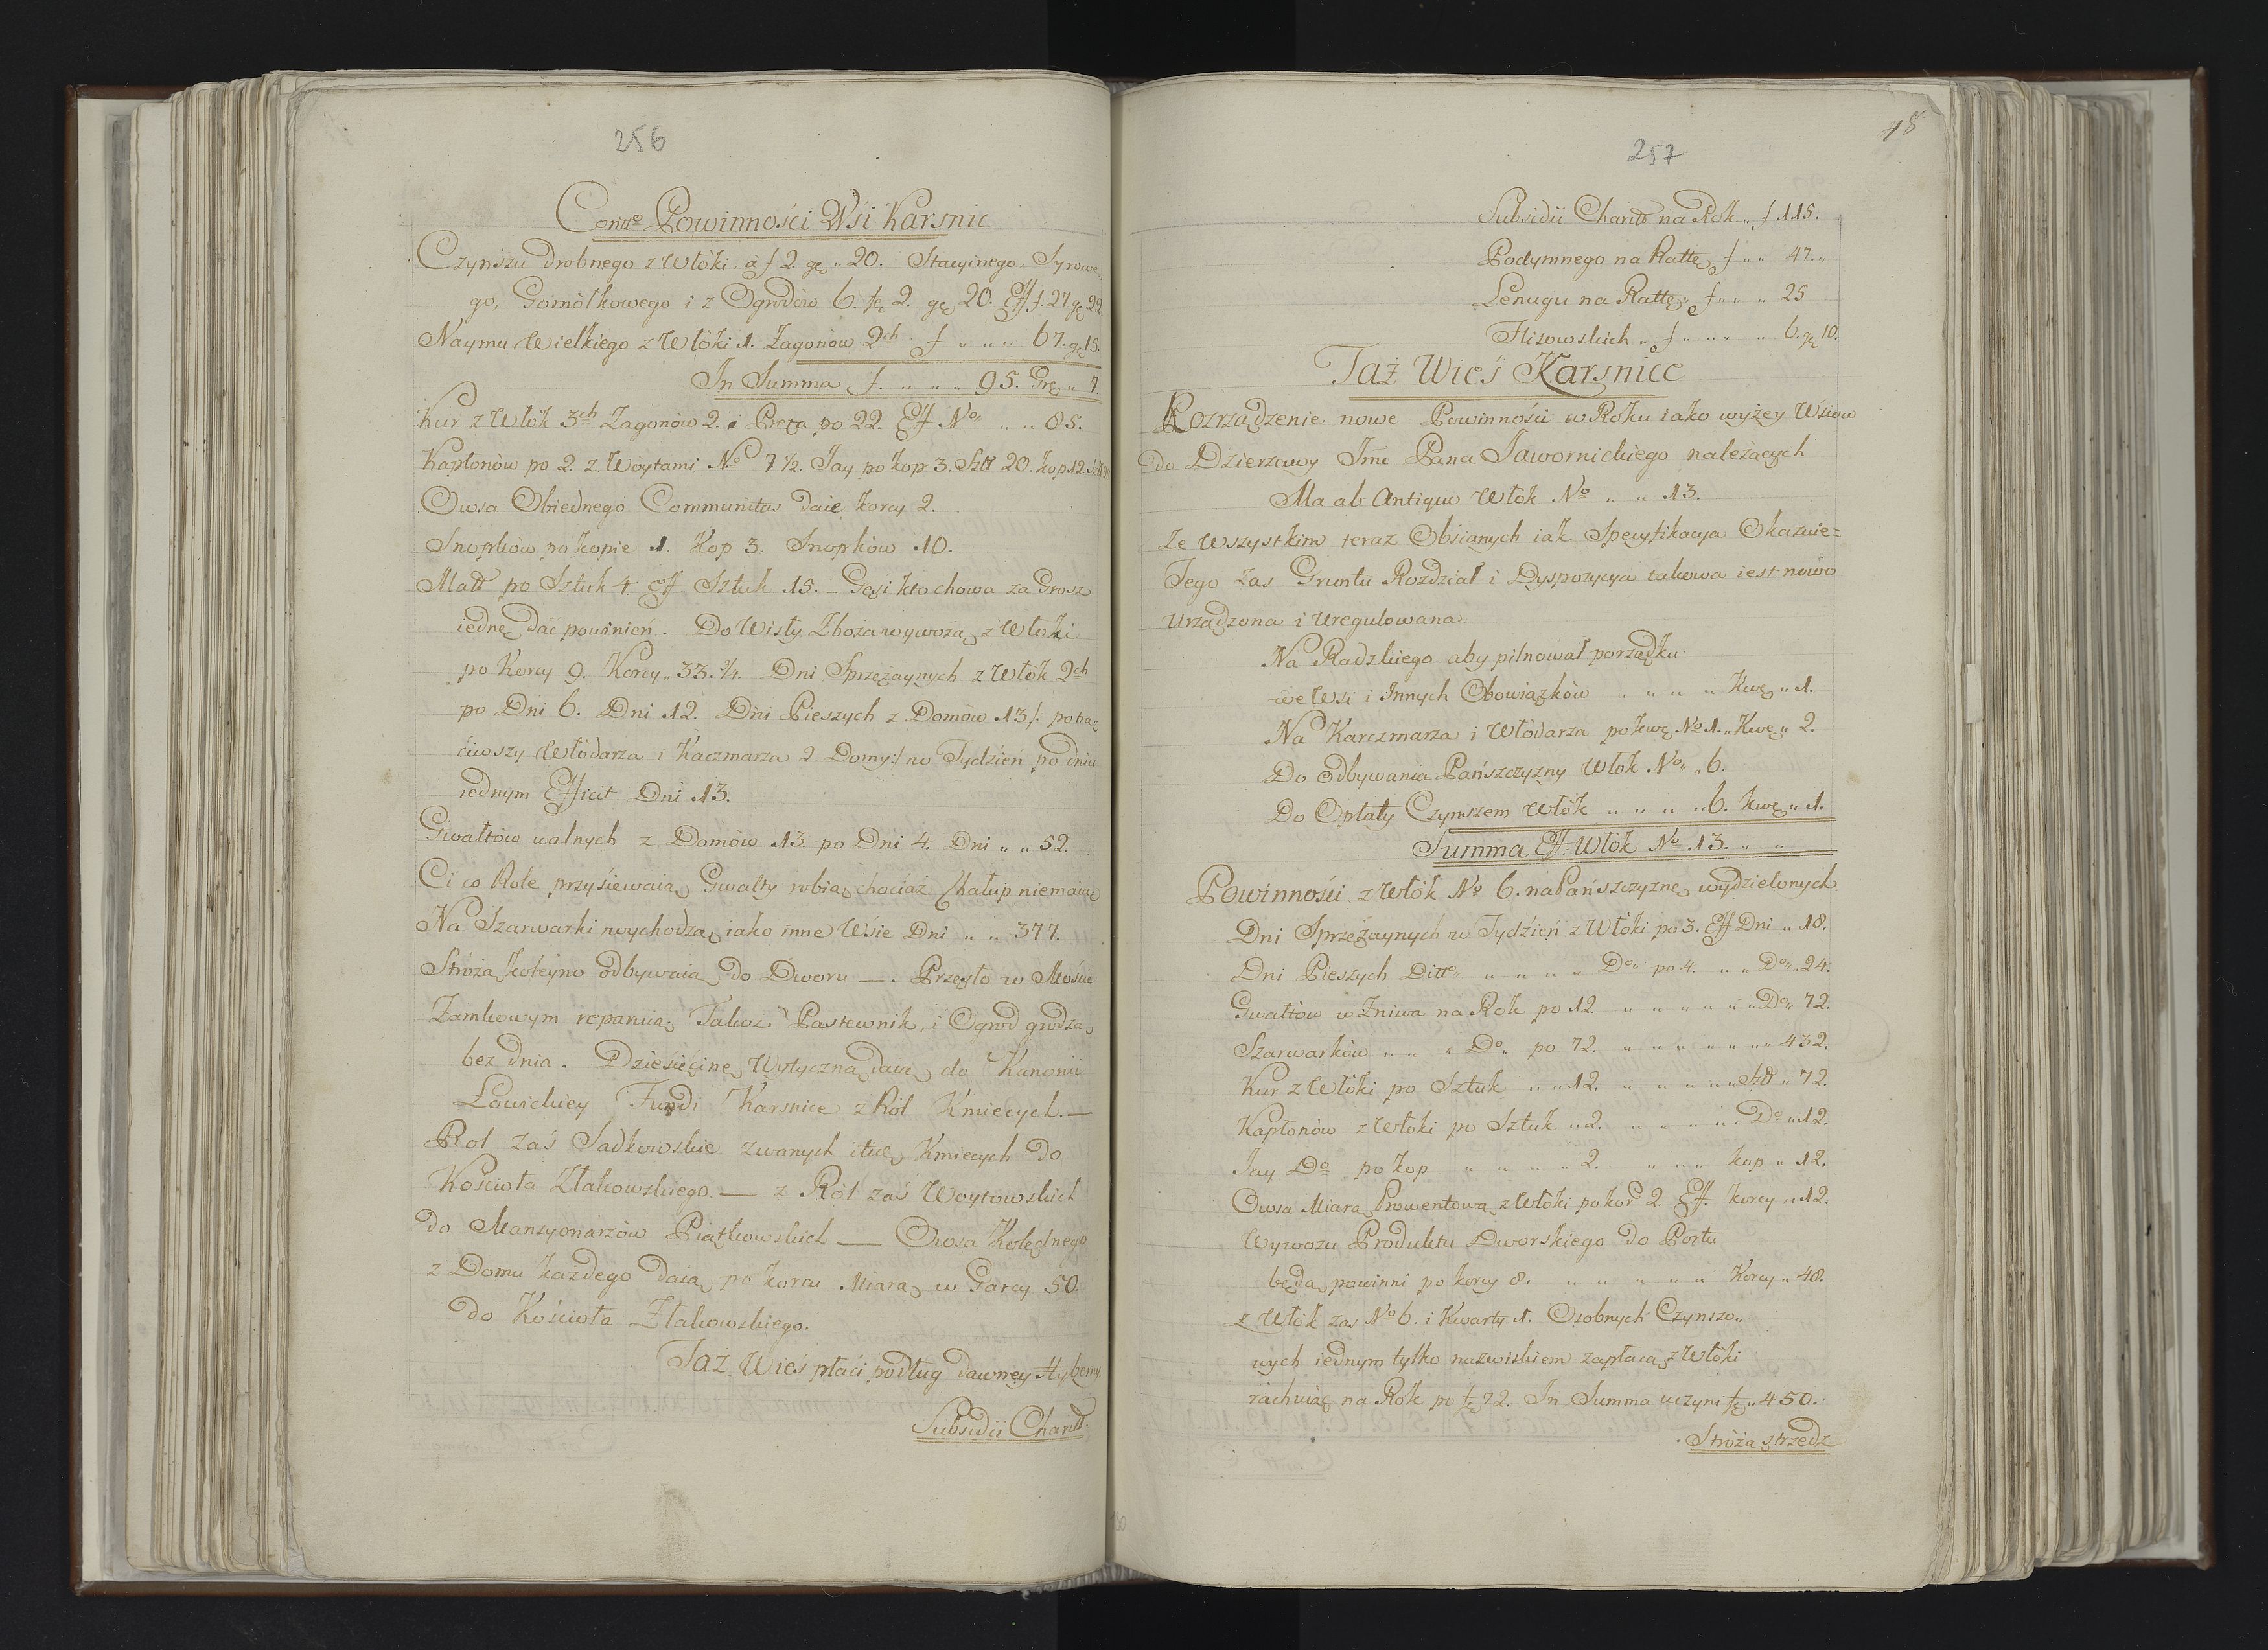 256
Contle Powinności Wsi Karsnic
Czynszu drobnego z Włóki à f 2. gę „ 20. Stacyinego, Syrowe,
go, Gomółkowego i z Ogrodów 6. fę 2. gę 20. Eff f. 27. gę 22.
Naymu Wielkiego z Włóki 1. Zagonów 2ch f „ „ „ 67. gę 15.
In Summa f. „ „ „ 95. Grę „ 7.
Kur z Włók 3ch Zagonów 2. i Pręta po 22. Eff No „ „ 85.
Kapłonów po 2. z Woytami No 7 1/2. Jay po kop 3. Sztt 20. kop 12.
Owsa Obiednego Communitas daie korcy 2.
Snopków po kopie 1. Kop 3. Snopków 10.
Matt po Sztuk 4. Eff Sztuk 15. — Gęsi kto chowa za Grosz
iednę dać powinień. Do Wisły Zboża wywożą z Włoki
po Korcy 9. Korcy „ 33. 3/4. Dni Sprzężaynych z Włók 2ch
po Dni 6. Dni 12. Dni Pieszych z Domów 13 /: potrą
ciwszy Włódarza i Kaczmarza 2 Domy :/ w Tydzień po dniu
iednym Efficit Dni 13.
Gwałtów walnych z Domów 13. po Dni 4. Dni „ „ 52.
Ci co Role przysiewaią Gwałty robią chociaż Chałup niemaią
Na Szarwarki wychodzą iako inne Wsie Dni „ „ 377.
Stróżą koleyno odbywaią do Dworu —. Przęsło w Moście
Zamkowym reparuią Takoż Pastewnik, i Ogrod grodzą
bez dnia. Dziesięcinę Wytyczną daią do Kanonii
Łowickiey Fundi Karsnice z Ról Kmiecych. —
Rol zaś Sadkowskie zwanych itię Kmiecych do
Kościoła Złakowskiego. — z Ról zaś Woytowskich
do Mansyonarzów Piątkowskich — Owsa Kolędnego
z Domu każdego daią po korcu Miarą w Garcy 50.
do Kościoła Złakowskiego.
Taż Wieś płaci podług dawney Hyberny.
Subsidii Charitt.
48
257
Subsidii Charitt na Rok „ f 115.
Podymnego na Rattę f „ „ 47. „
Lenugu na Rattę f „ „ „ 25
Flisowskich „ f „ „ „ „ 6. gę 10.
Taż Wieś Karsnice
Rozrządzenie nowe Powinności w Roku iako wyżey Wsiow
do Dzierzawy Jmć Pana Jawornickiego należących
Ma ab Antiquo Włók No „ „ 13.
Ze wszystkim teraz Obsianych iak Specyfikacya Okazuie =
Tego zas Gruntu Rozdział i Dyspozycya takowa iest nowo
urządzona i uregulowana.
Na Radzkiego aby pilnował porządku
we Wsi i Innych Obowiązków „ „ „ „ Kwę „ 1.
Na Karczmarza i Włódarza po kwę No 1. „ Kwę „ 2.
Do odbywania Pańszczyzny Włok No „ 6.
Do Opłaty Czynszem Włók „ „ „ „ 6. kwę „ 1.
Summa Eff. Włók No 13. „ „
Powinności z Włók No 6. na Pańszczyznę wydzielonych.
Dni Sprzężaynych w Tydzień z Włóki po 3. Eff Dni „ 18.
Dni Pieszych Ditto „ „ „ „ Do po 4. „ „ Do „ 24.
Gwałtów w Żniwa na Rok po 12. „ „ „ „ „ „ Do „ 72.
Szarwarków „ „ „ Do „ po 72. „ „ „ „ „ „ „ 432.
Kur z Włóki po Sztuk „ „ 12. „ „ „ „ „ Sztt „ 72.
Kapłonów z Włoki po Sztuk „ 2. „ „ „ „ „ Do „ 12.
Jay Do po kop „ „ „ „ „ 2. „ „ „ kop „ 12.
Owsa Miarą Prowentową z Włóki po kor 2. Eff. korcy „ 12.
Wywozu Produktu Dworskiego do Portu
będą powinni po korcy 8. „ „ „ „ „ „ Korcy „ 48.
z Włók zas No 6. i Kwarty 1. Osobnych Czynszo„
wych iednym tylko nazwiskiem zapłacą z Włóki
rachuiąc na Rok po fę 72. In Summa uczyni fę „ 450.
Stróżą strzedz